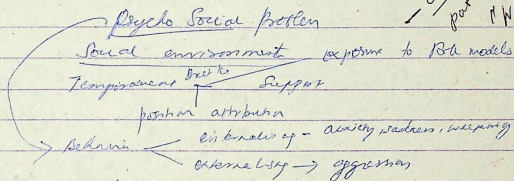 Psycho Social Problem
Social environment exposure to Role models
Temperament Support
position attribution
Behavior internalising - anxiety, sadness, weeping
externalising → aggression